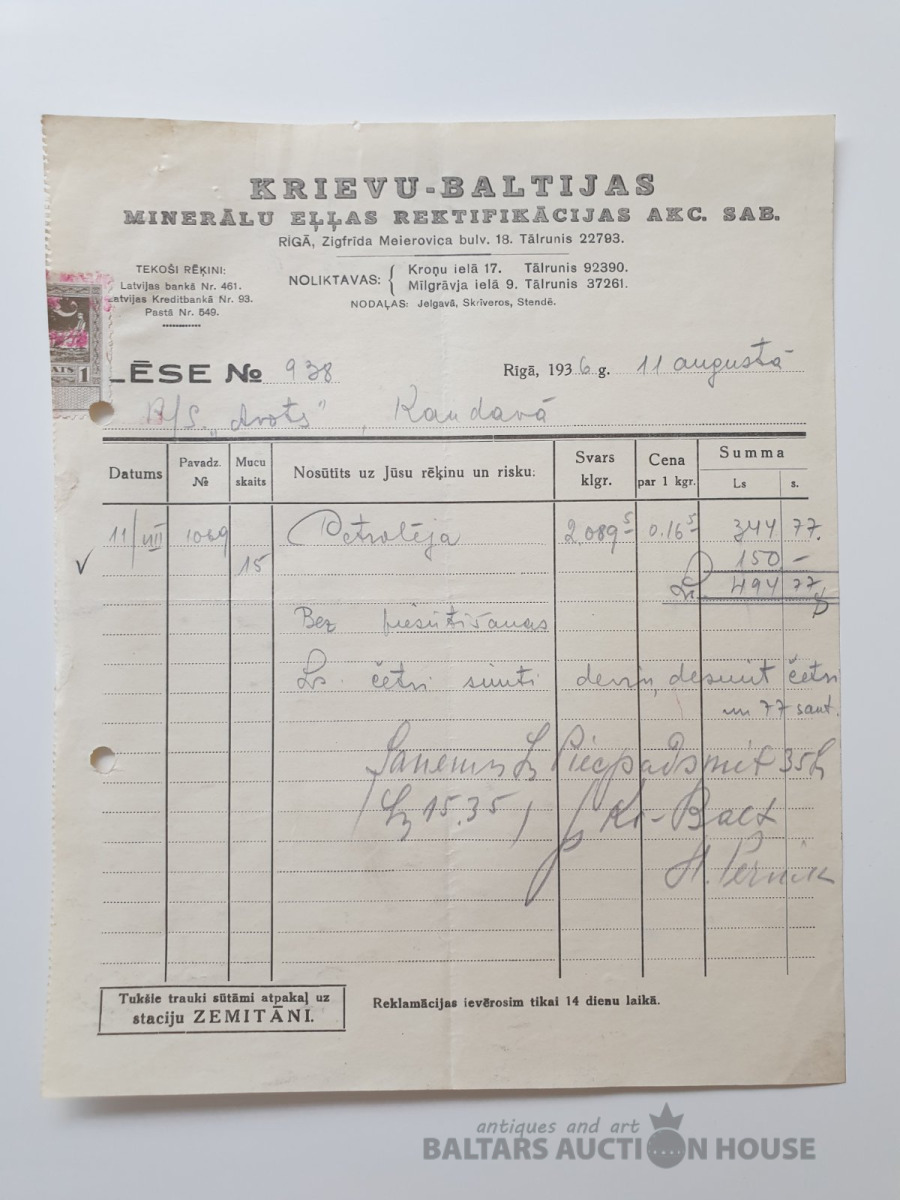 KRIEVU-BALTIJAS
MINERĀLU EĻĻAS REKTIFIKĀCIJAS AKC. SAB.
RĪGĀ, Zigfrīda Meierovica bulv. 18. Tālrunis 22793.
TEKOŠI RĒĶINI:
Latvijas bankā Nr. 461.
Latvijas Kreditbankā Nr. 93.
Pastā Nr. 549.
NOLIKTAVAS: { Kroņu ielā 17. Tālrunis 92390.
Mīlgrāvja ielā 9. Tālrunis 37261.
NODAĻAS: Jelgavā, Skrīveros, Stendē.
1
LĒSE № 938
Rīgā, 1936 g. 11 augustā
A/S. „Avots”, Kandavā
Datums
Pavadz. №
Mucu skaits
Nosūtīts uz Jūsu rēķinu un risku:
Svars klgr.
Cena par 1 kgr.
Summa
Ls s.
11/VIII 1069 Petroleja 2.089 5 0.16 5 344 77.
15 150 –
Ls. 494 77
Bez piesūtīšanas
Ls. četri simti deviņdesmit četri
un 77 sant.
Saņemts Ls Piecpadsmit 35
Ls 15.35 Kr-Balt
H. Pernik
Tukšie trauki sūtāmi atpakaļ uz
staciju ZEMITĀNI.
Reklamācijas ievērosim tikai 14 dienu laikā.
antiques and art
BALTARS AUCTION HOUSE